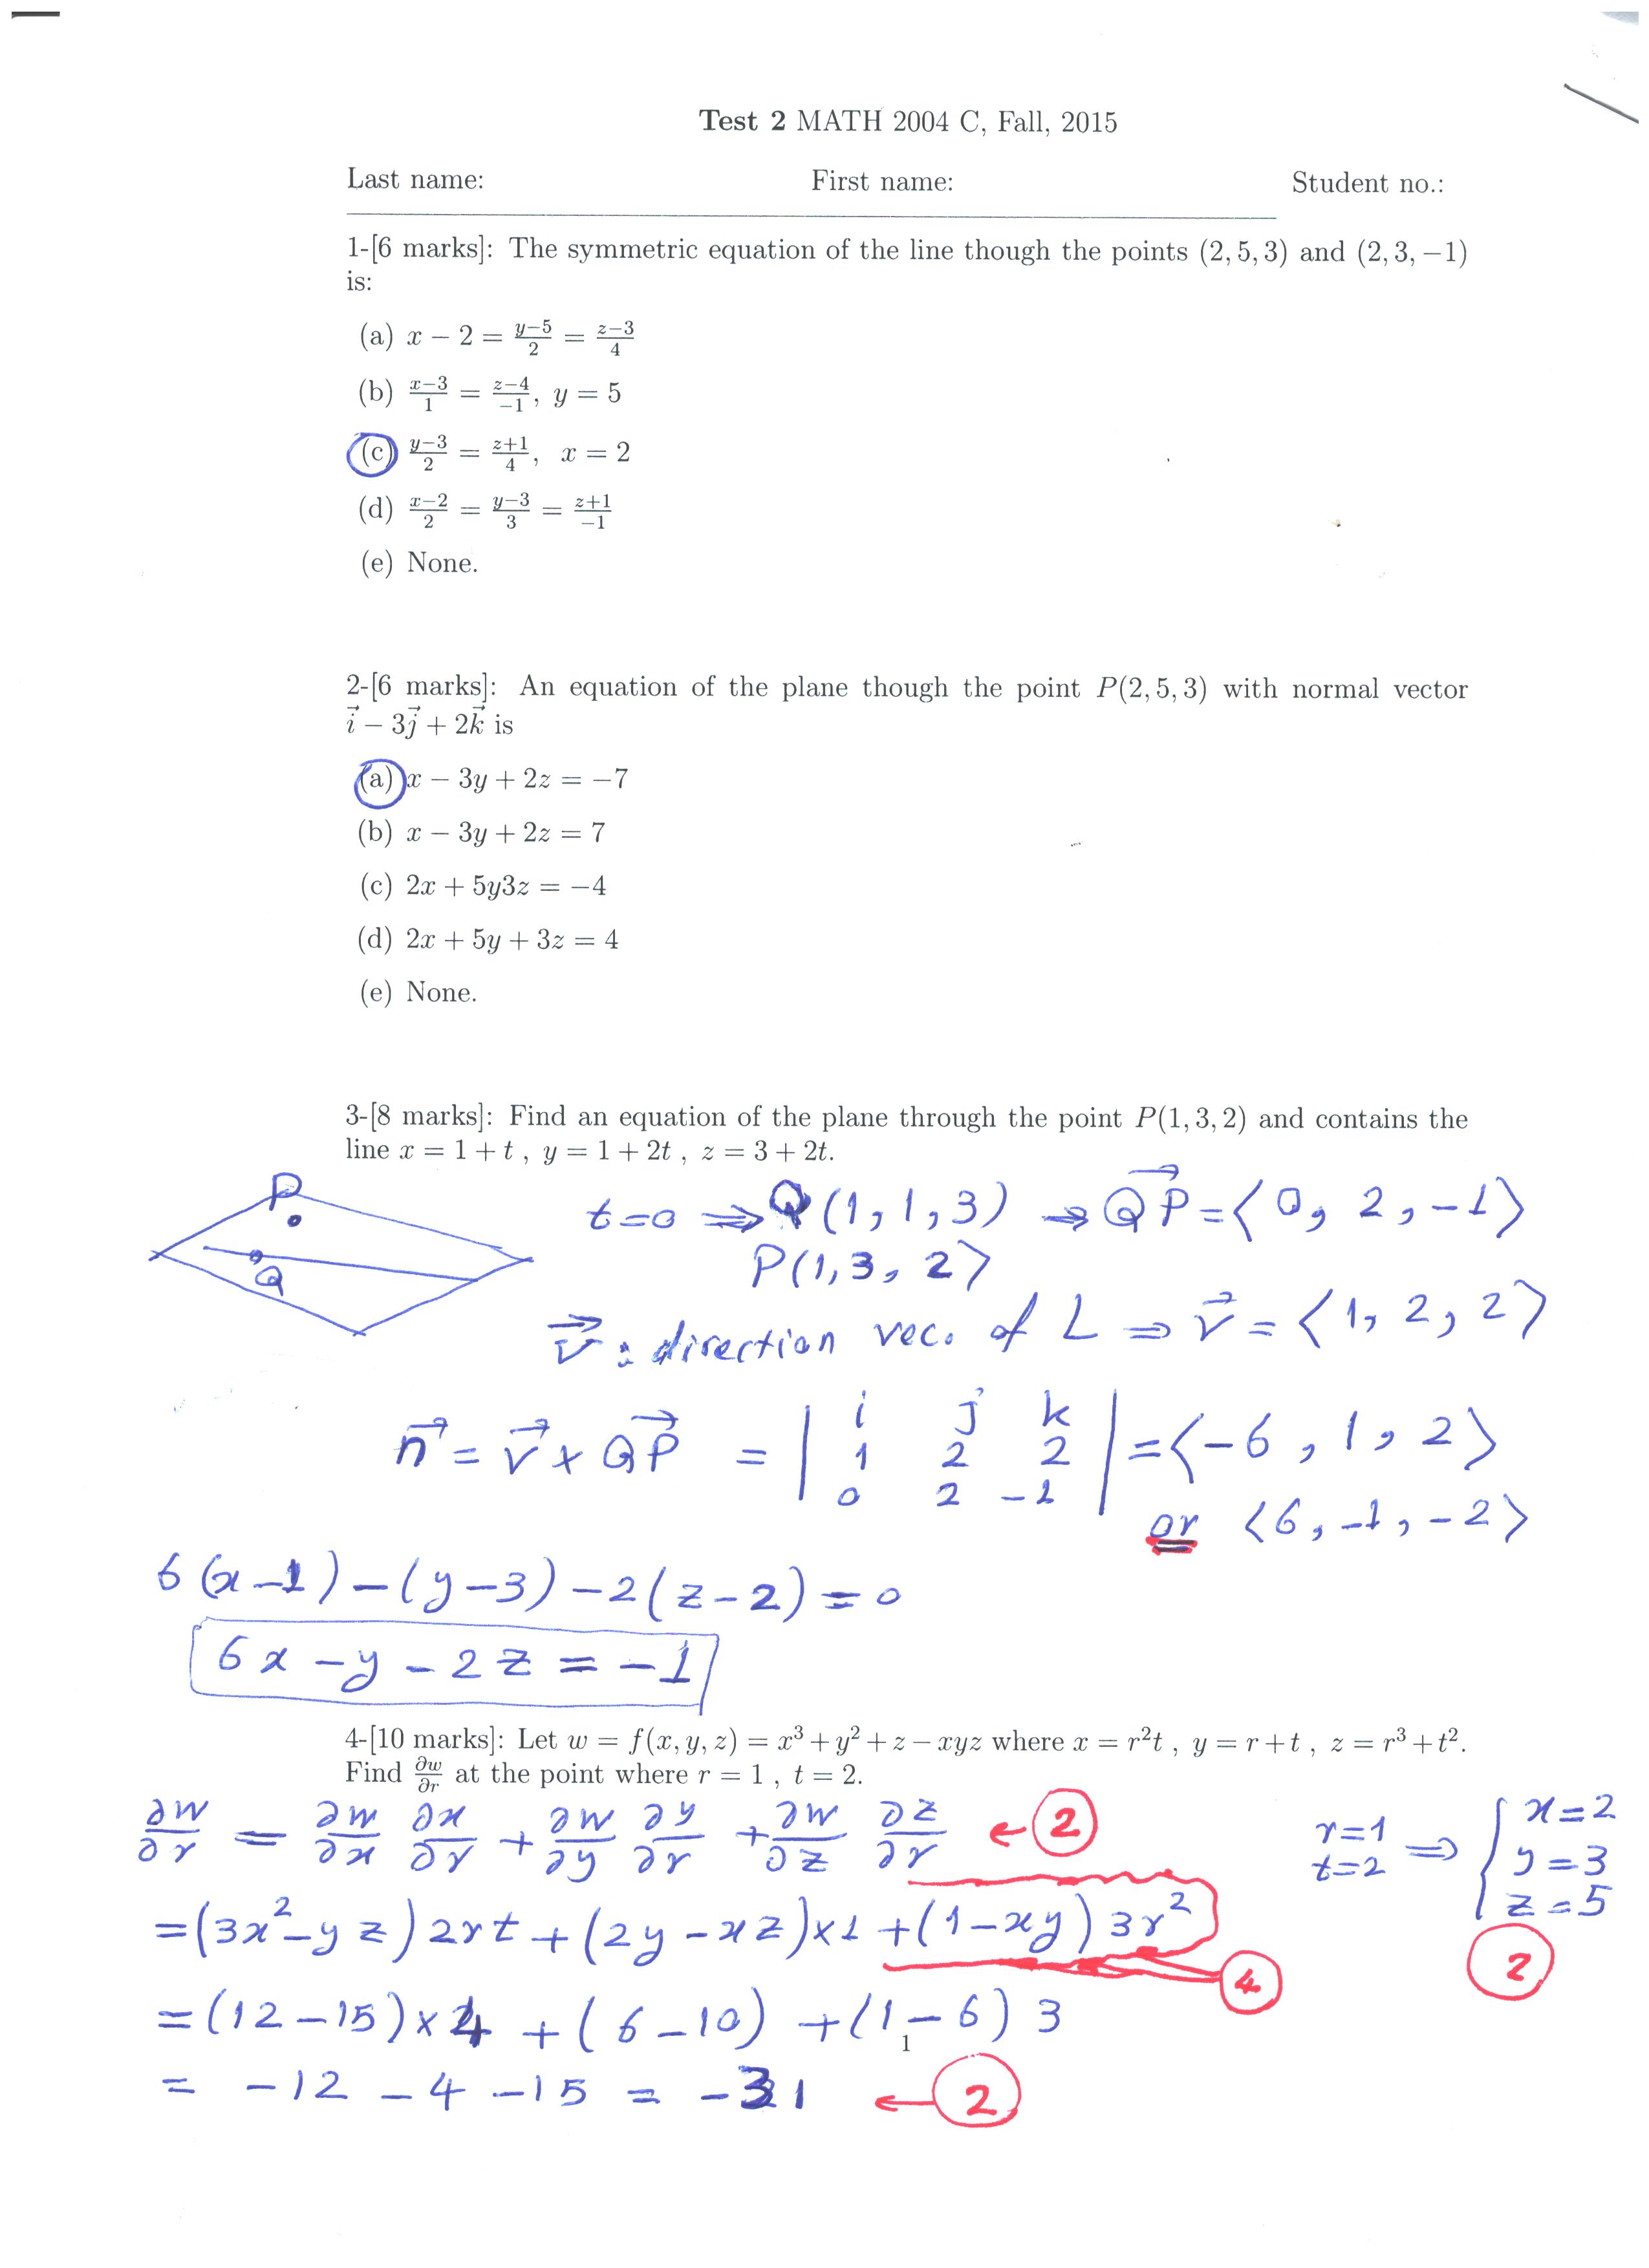 Test 2 MATH 2004 C, Fall, 2015
Last name: First name: Student no.:
1-[6 marks]: The symmetric equation of the line though the points (2, 5, 3) and (2, 3, −1)
is:
(a) x − 2 = (y−5)/2 = (z−3)/4
(b) (x−3)/1 = (z−4)/−1, y = 5
(c) (y−3)/2 = (z+1)/4, x = 2
(d) (x−2)/2 = (y−3)/3 = (z+1)/−1
(e) None.
2-[6 marks]: An equation of the plane though the point P(2, 5, 3) with normal vector
i⃗ − 3j⃗ + 2k⃗ is
(a) x − 3y + 2z = −7
(b) x − 3y + 2z = 7
(c) 2x + 5y3z = −4
(d) 2x + 5y + 3z = 4
(e) None.
3-[8 marks]: Find an equation of the plane through the point P(1, 3, 2) and contains the
line x = 1 + t , y = 1 + 2t , z = 3 + 2t.
P
Q
t=0 ⇒ Q(1, 1, 3) ⇒ QP⃗ = ⟨0, 2, −1⟩
P(1, 3, 2⟩
v⃗ : direction vec. of L ⇒ v⃗ = ⟨1, 2, 2⟩
n⃗ = v⃗ × QP⃗ = | i j k
1 2 2
0 2 −1 | = ⟨−6, 1, 2⟩
or ⟨6, −1, −2⟩
6(x−1)−(y−3)−2(z−2)=0
6x − y − 2z = −1
4-[10 marks]: Let w = f(x, y, z) = x³ + y² + z − xyz where x = r²t , y = r + t , z = r³ + t².
Find ∂w/∂r at the point where r = 1 , t = 2.
∂w/∂r = ∂w/∂x ∂x/∂r + ∂w/∂y ∂y/∂r + ∂w/∂z ∂z/∂r ← 2
r=1
t=2 ⇒ { x=2
y=3
z=5
2
=(3x²−yz)2rt+(2y−xz)×1+(1−xy)3r²
4
=(12−15)×4 +(6−10) +(1−6)3
1
= −12 −4 −15 = −31 ← 2